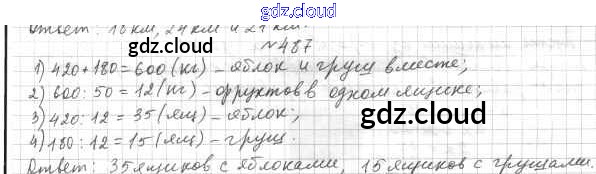 gdz.cloud
Ответ: 18 км, 24 км и 27 км.
gdz.cloud №487
1) 420+180=600(кг) – яблок и груш вместе;
2) 600:50=12(кг) – фруктов в одном ящике;
3) 420:12=35(ящ) – яблок; gdz.cloud
4) 180:12=15(ящ) – груш.
Ответ: 35 ящиков с яблоками, 15 ящиков с грушами.